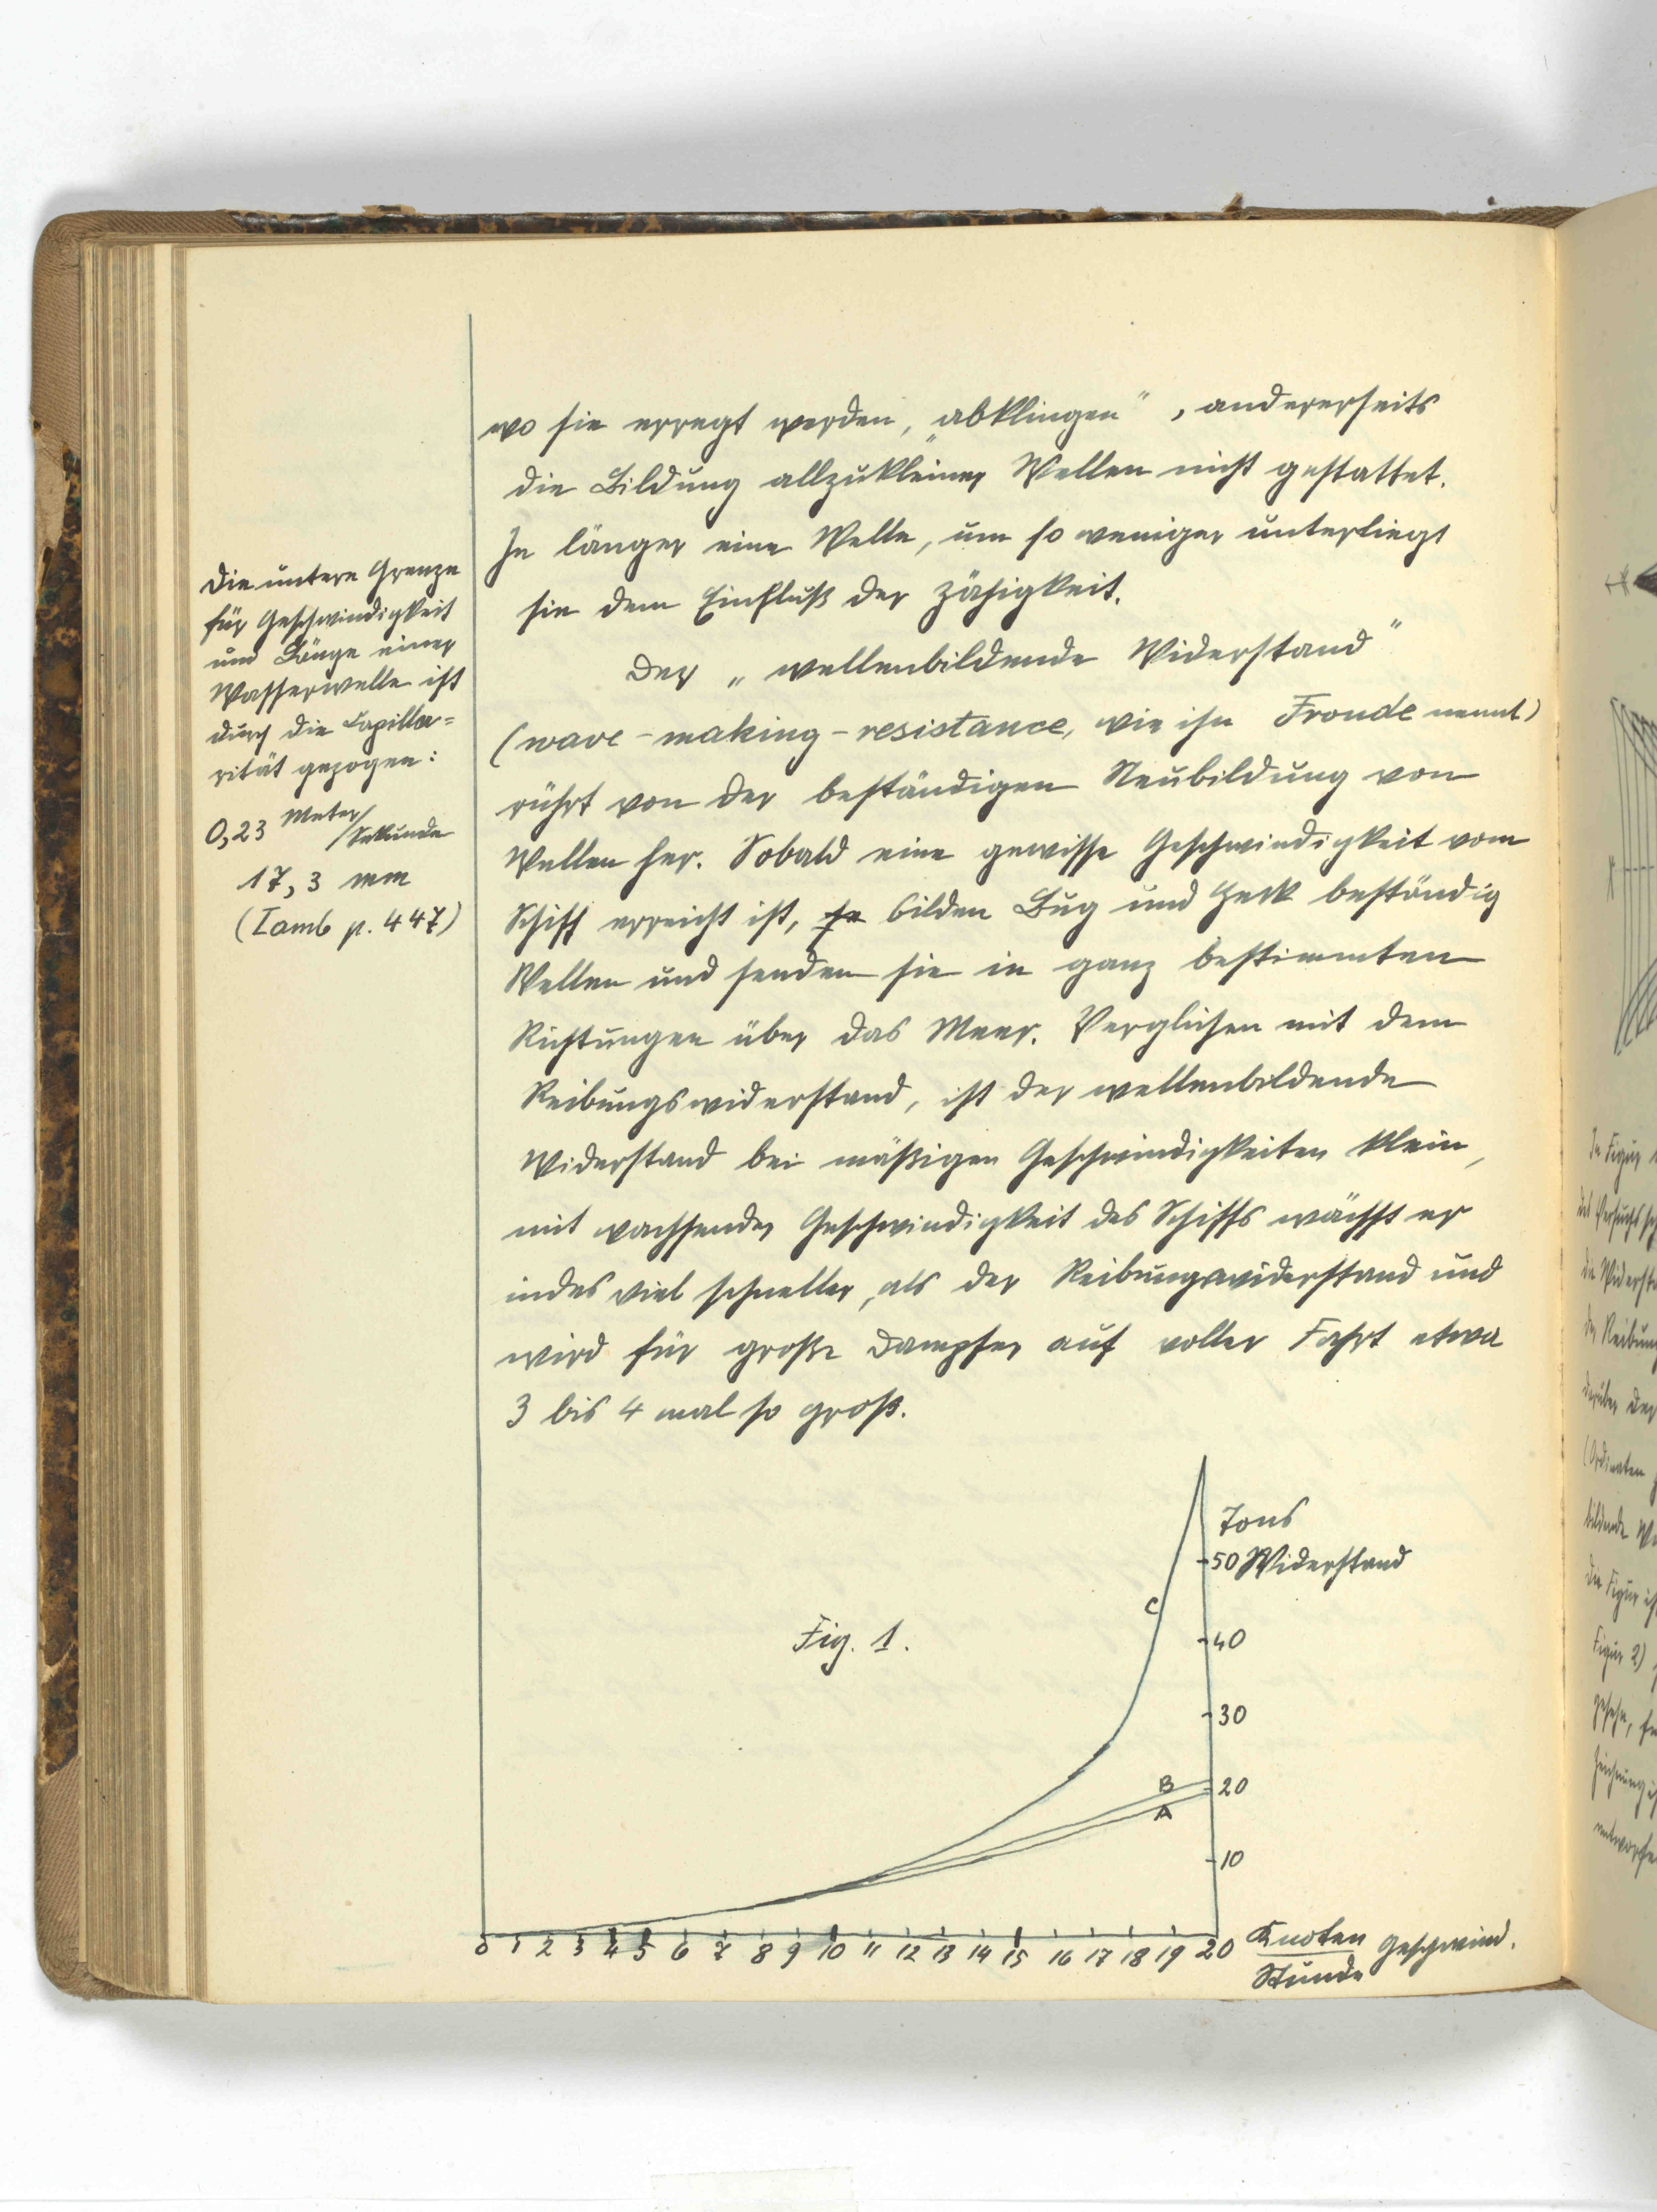 wo sie erregt werden, „abklingen“, andererseits
die Bildung allzukleiner Wellen nicht gestattet.
Je länger eine Welle, um so weniger unterliegt
sie dem Einfluß der Zähigkeit.
Der „wellenbildende Widerstand“
(wave-making-resistance, wie ihn Froude nennt)
rührt von der beständigen Neubildung von
Wellen her. Sobald eine gewisse Geschwindigkeit vom
Schiff erreicht ist, so bilden Bug und Heck beständig
Wellen und senden sie in ganz bestimmten
Richtungen über das Meer. Verglichen mit dem
Reibungswiderstand, ist der wellenbildende
Widerstand bei mäßigen Geschwindigkeiten klein,
mit wachsender Geschwindigkeit des Schiffs wächst er
indes viel schneller, als der Reibungswiderstand und
wird für große Dampfer auf voller Fahrt etwa
3 bis 4 mal so groß.
Die untere Grenze
für Geschwindigkeit
und Länge einer
Wasserwelle ist
durch die Capilla=
rität gezogen:
0,23 Meter/Sekunde
17,3 mm
(Lamb p. 447)
Tons
50 Widerstand
C
Fig. 1.
40
30
B
20
A
10
0 1 2 3 4 5 6 7 8 9 10 11 12 13 14 15 16 17 18 19 20 Knoten Geschwind.
Stunde
In Figur
des Versuchs
die Widerst
der Reibung
darüber der
(Ordinaten
bildende
die Figur
Figur 2)